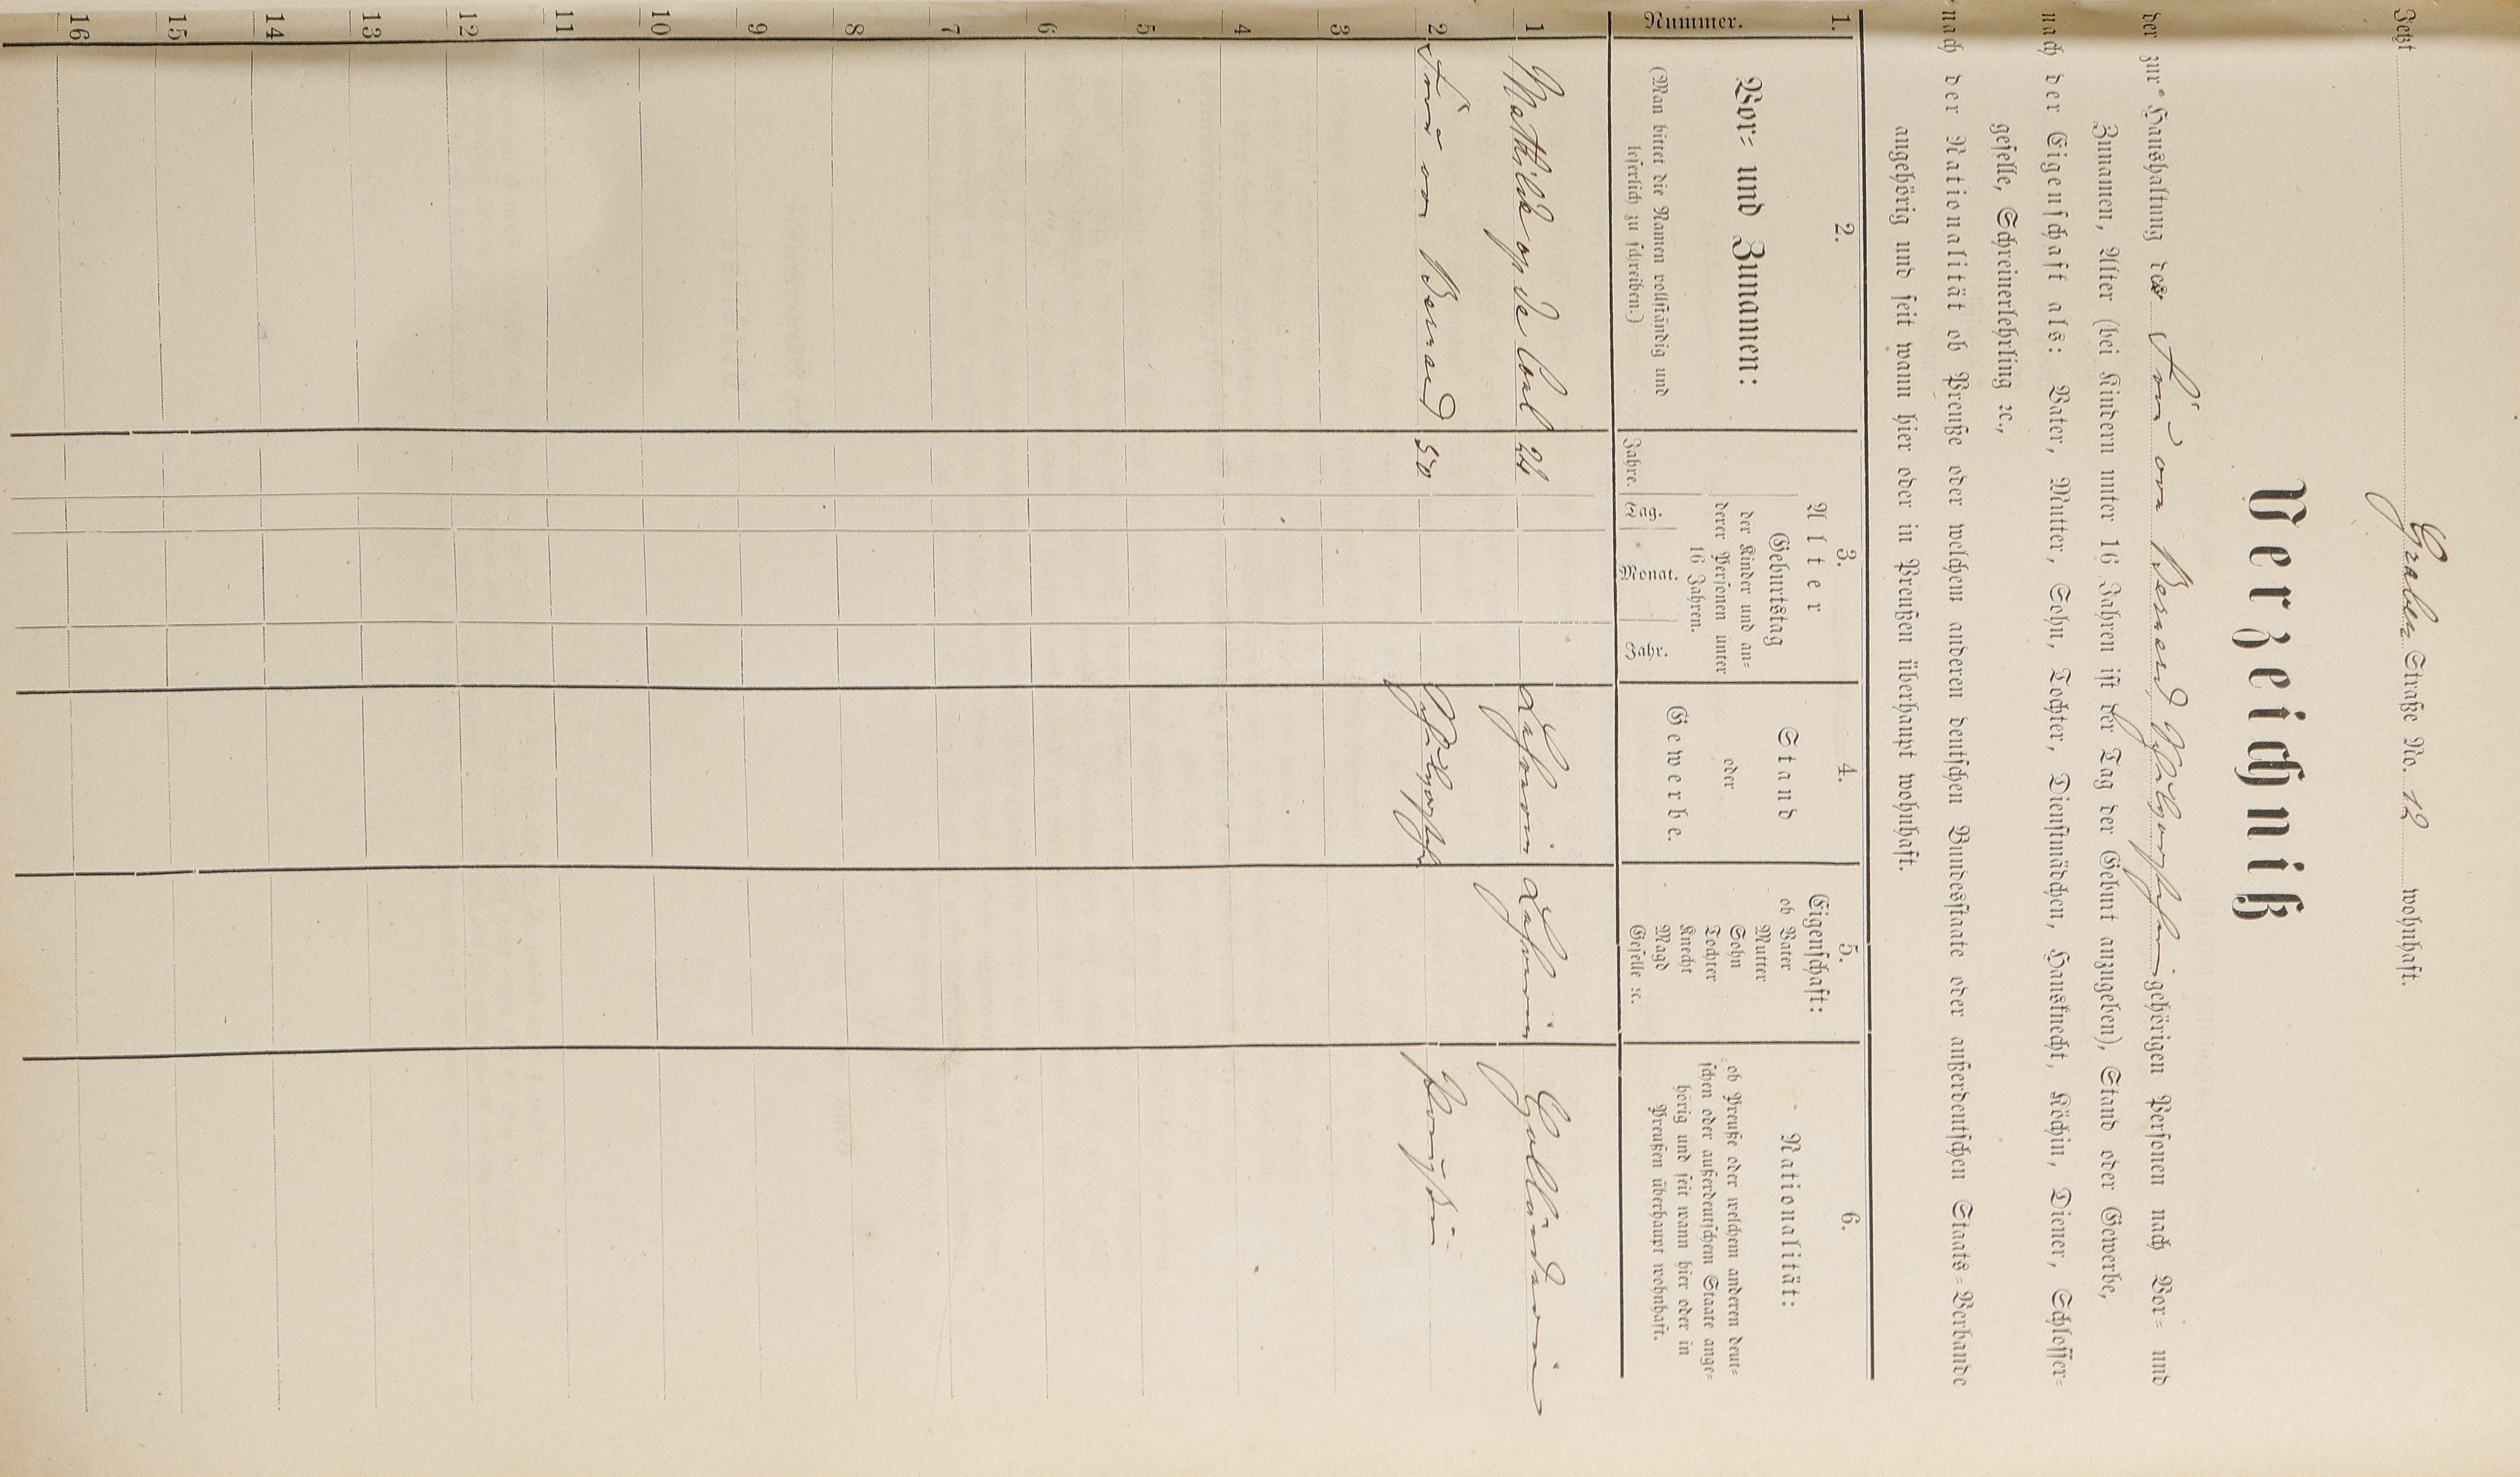 Jetzt Graben Straße No. 12 wohnhaft.
Verzeichniß
der zur Haushaltung des von Bernard gehörigen Personen nach Vor- und
Zunamen, Alter (bei Kindern unter 16 Jahren ist der Tag der Geburt anzugeben), Stand oder Gewerbe,
nach der Eigenschaft als: Vater, Mutter, Sohn, Tochter, Dienstmädchen, Hausknecht, Köchin, Diener, Schlosser-
geselle, Schreinerlehrling ꝛc.,
nach der Nationalität ob Preuße oder welchem anderen deutschen Bundesstaate oder außerdeutschen Staats-Verbande
angehörig und seit wann hier oder in Preußen überhaupt wohnhaft.
1. 2. 3. 4. 5. 6.
Nummer.
Vor- und Zunamen:
(Man bittet die Namen vollständig und
leserlich zu schreiben.)
Alter
Geburtstag
der Kinder und an-
derer Personen unter
16 Jahren.
Jahre. Tag. Monat. Jahr.
Stand
oder
Gewerbe.
Eigenschaft:
ob Vater
Mutter
Sohn
Tochter
Knecht
Magd
Geselle ꝛc.
Nationalität:
ob Preuße oder welchem anderen deut-
schen oder außerdeutschem Staate ange-
hörig und seit wann hier oder in
Preußen überhaupt wohnhaft.
1 Mathilde op de Coul 24 Lehrerin Lehrerin Holländerin
2 von Bernard 50 Preußin
3
4
5
6
7
8
9
10
11
12
13
14
15
16